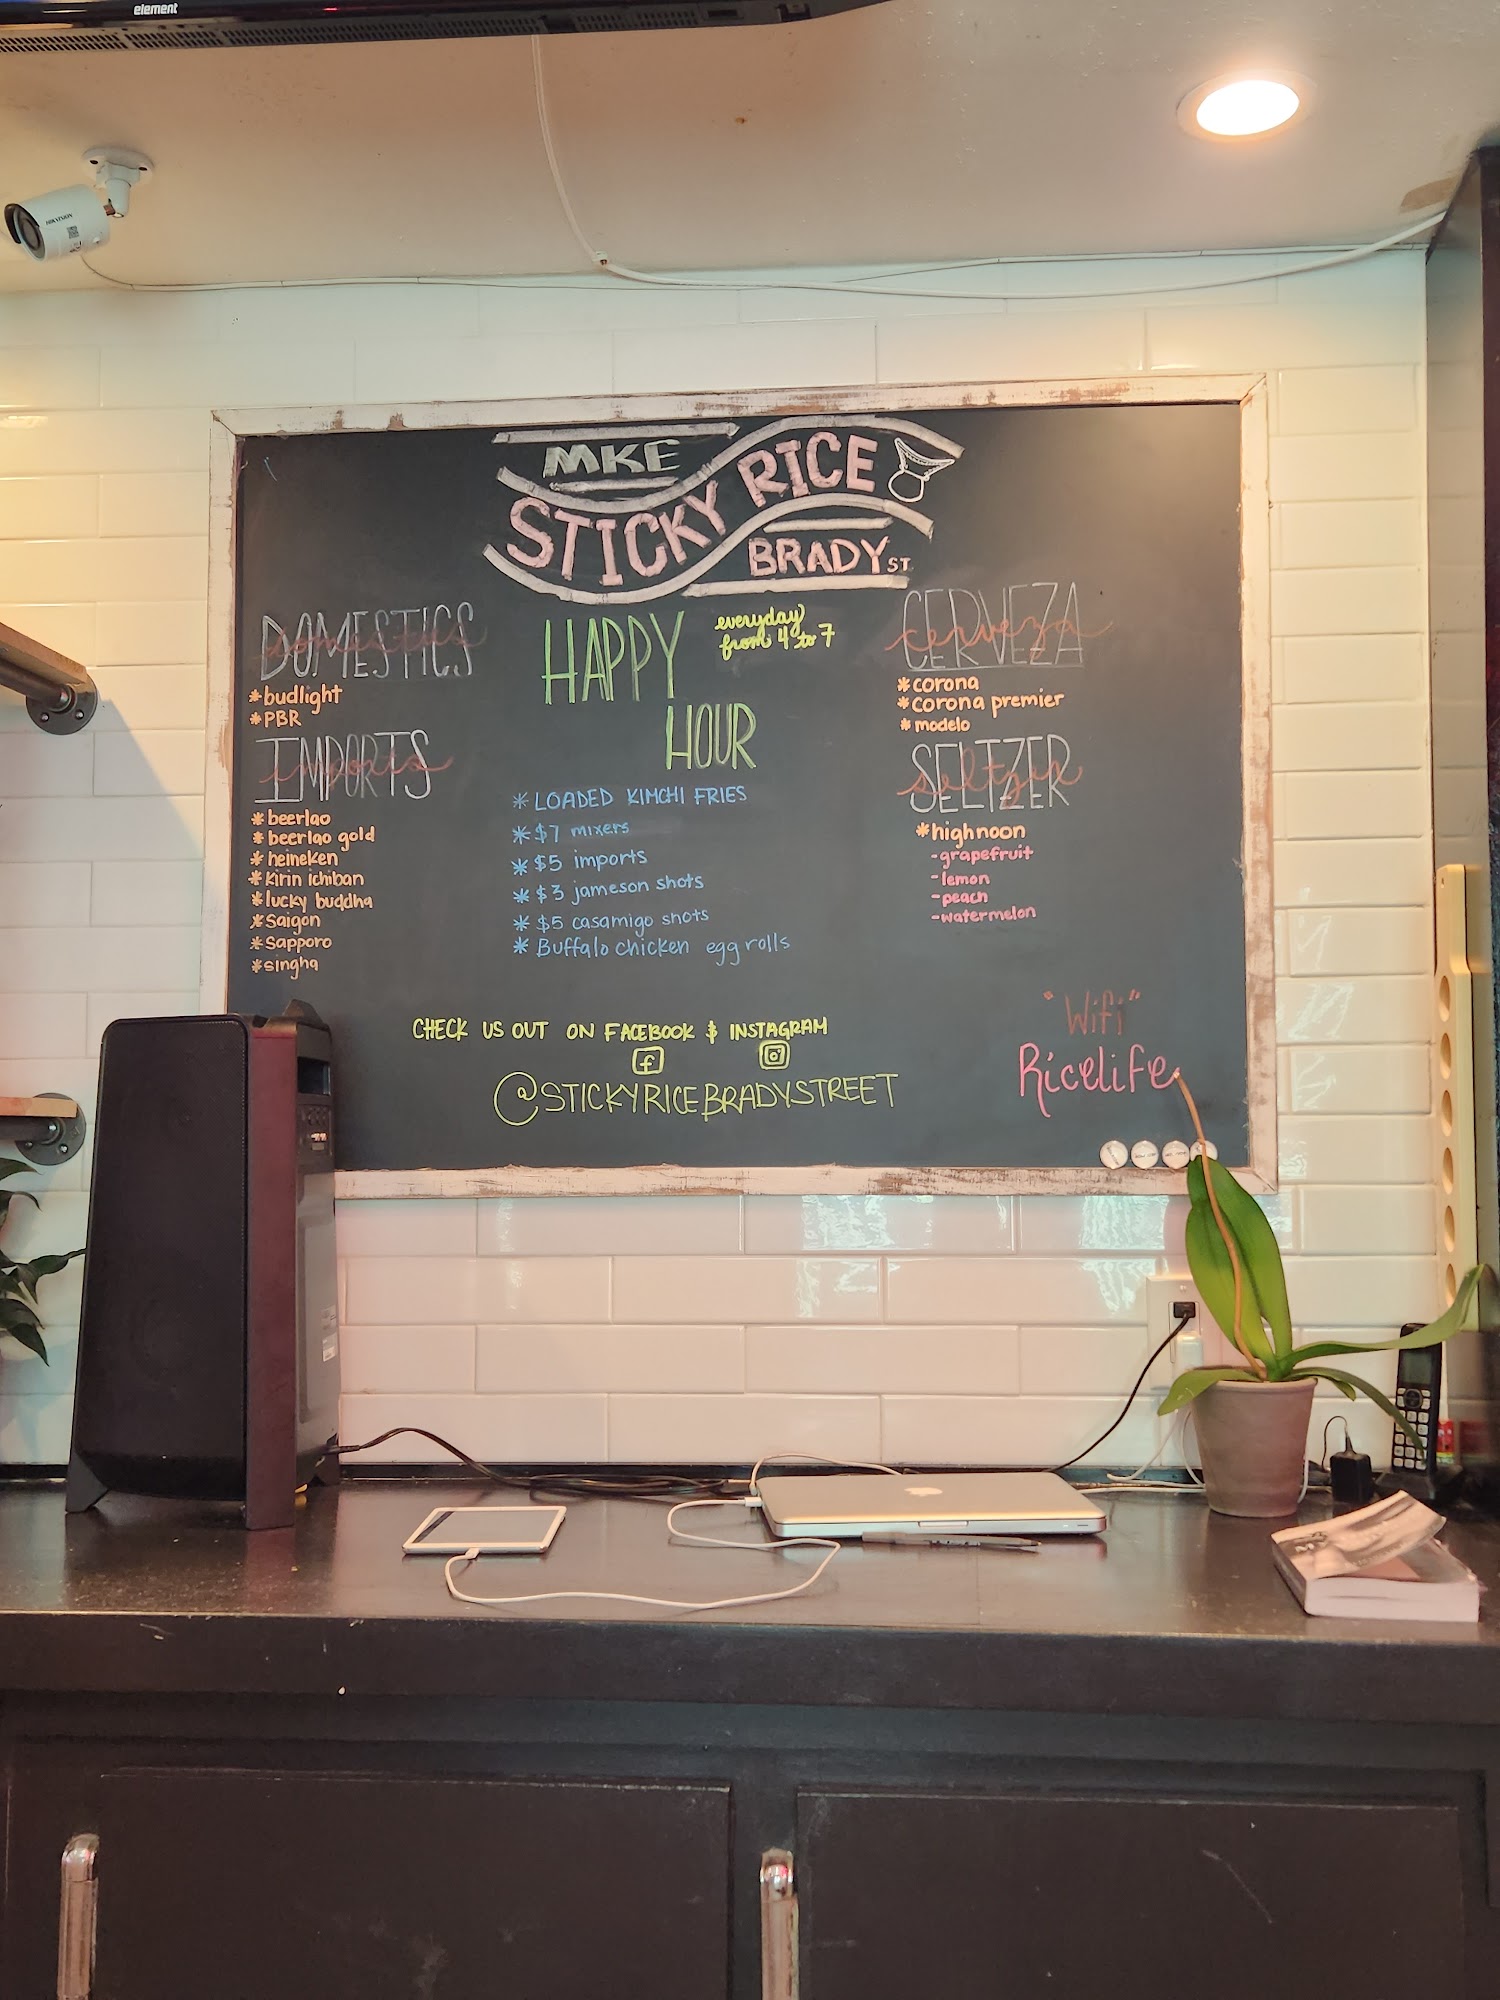 element
HIKVISION
MKE
STICKY RICE
BRADY ST.
DOMESTICS
domestics
*budlight
*PBR
IMPORTS
imports
*beerlao
*beerlao gold
*heineken
*Kirin ichiban
*lucky buddha
*Saigon
*Sapporo
*singha
HAPPY
HOUR
everyday
from 4 to 7
*LOADED KIMCHI FRIES
*$7 mixers
*$5 imports
*$3 jameson shots
*$5 casamigo shots
*Buffalo chicken egg rolls
CERVEZA
cerveza
*corona
*corona premier
*modelo
SELTZER
seltzer
*highnoon
-grapefruit
-lemon
-peach
-watermelon
CHECK US OUT ON FACEBOOK & INSTAGRAM
f
@STICKYRICEBRADYSTREET
"Wifi"
Ricelife